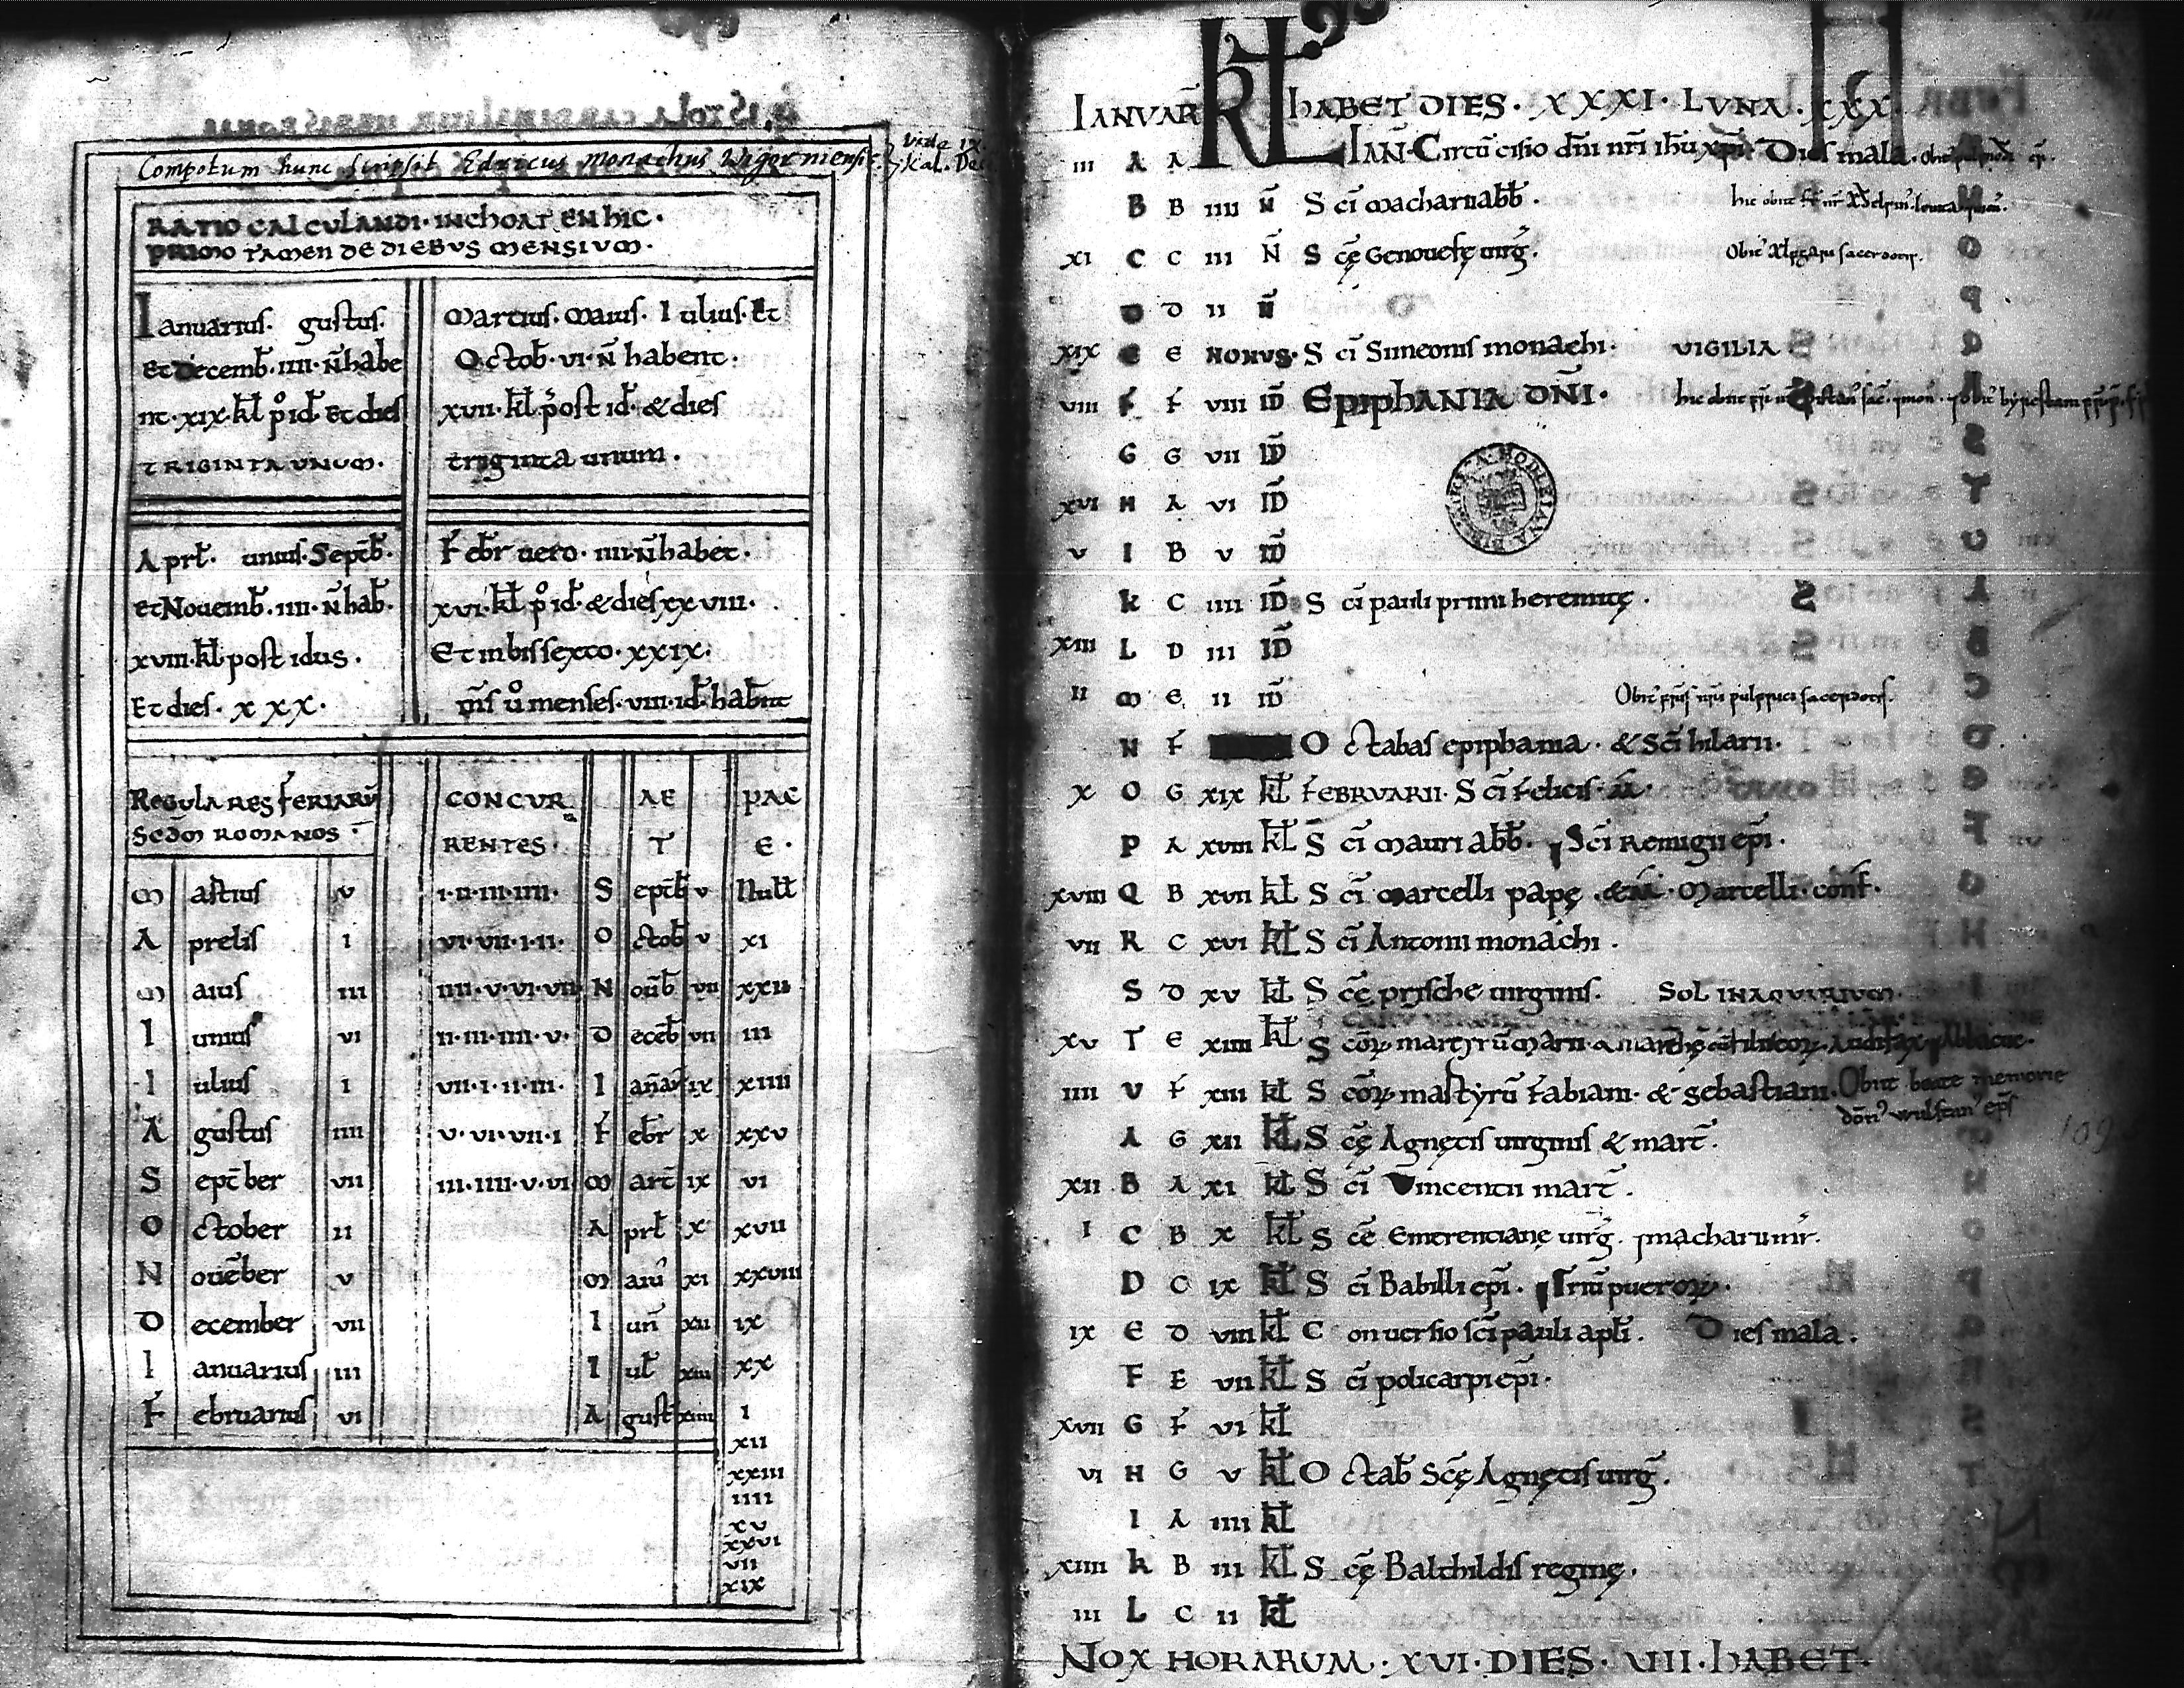 Compotum hunc scripsit Edricus monachus Wigorniensis. Vide IX.
Kal. Dec
RATIO CALCULANDI · INCHOAT EN HIC ·
PRIMO TAMEN DE DIEBUS MENSIUM ·
Ianuarius. gustus.
Et Decemb̄. IIII. N̄ habe
nt. XIX. kl̄ p° id̄. Et dies
TRIGINTA UNUM.
Martius. Maius. Iulius. Et
Octob̄. VI. N̄ habent.
XVII. kl̄ post id̄. & dies
triginta unum.
Aprl̄. unius. Septēb̄.
et Nouemb̄. IIII. N̄ hab̄.
XVIII. kl̄ post idus.
Et dies. XXX.
Febr uero. IIII. N̄ habet.
XVI. kl̄ p° id̄. & dies XXVIII.
Et in bissexto. XXIX.
menses. VIII. id̄. hab̄nt
REGULARES FERIARŪ
SCD̄M ROMANOS
CONCUR
RENTES.
AE PAC
T E.
M artius V I·II·III·IIII· S eptēb̄ V Null̄
A prelis I VI·VII·I·II· O ctob̄ V XI
M aius III IIII·V·VI·VII N oūb̄ VII XXII
I unius VI II·III·IIII·V· D ecēb̄ VII III
I ulius I VII·I·II·III· I anār̄ IX XIIII
A gustus IIII V·VI·VII·I F ebr̄ X XXV
S eptēber VII III·IIII·V·VI M art̄ IX VI
O ctober II A prl̄ X XVII
N ouēber V M aiu' XI XXVIII
D ecember VII I un̄ XII IX
I anuarius III I ul̄ XIII XX
F ebruarius VI A gust XIIII I
XII
XXIII
IIII
XV
XXVI
VII
XIX
IANUAR̄ HABET DIES · XXXI · LUNA · XXX
III A A KL IAN̄. Circūcisio dn̄i nr̄i ihū xp̄i. Dies mala.
B B IIII N̄ S cī Macharii abb̄.
XI C C III N̄ S cę̄ Genouefę uirḡ. Obit' Ælfgarus sacerdotis.
D D II N̄
XIX E E NONUS. S cī Simeonis monachi. VIGILIA
VIII F F VIII ID̄ EPIPHANIA DN̄I.
G G VII ID̄
XVI H A VI ID̄
V I B V ID̄
K C IIII ID̄ S cī pauli primi heremitę.
XIII L D III ID̄
II M E II ID̄ Obit' sacerdotis.
N F O ctabas epiphania. & Scī hilarii.
X O G XIX kl̄ FEBRUARII. S cī Felicis.
P A XVIII kl̄ S cī Mauri abb̄. Scī Remigii ep̄i.
XVIII Q B XVII kl̄ S cī Marcelli papę. Marcelli. conf̄.
VII R C XVI kl̄ S cī Antonii monachi.
S D XV kl̄ S cę̄ prische uirginis. SOL IN AQUARIUM.
XV T E XIIII kl̄ S cōꝝ martyrū Marii Audifax Abbacuc.
IIII U F XIII kl̄ S cōꝝ martyrū Fabiani. & sebastiani. Obiit beate memorie
don' wulstan' ep̄s
A G XII kl̄ S cę̄ Agnetis uirginis & mart̄.
XII B A XI kl̄ S cī Vincentii mart̄.
I C B X kl̄ S cē Emerentianę uirḡ. ⁊ macharii mr̄.
D C IX kl̄ S cī Babilli ep̄i. Triū pueroꝝ.
IX E D VIII kl̄ C onuersio scī pauli apl̄i. Dies mala.
F E VII kl̄ S cī policarpi ep̄i.
XVII G F VI kl̄
VI H G V kl̄ O ctab̄ Scę̄ Agnetis uirḡ.
I A IIII kl̄
XIIII K B III kl̄ S cę̄ Balthildis reginę.
III L C II kl̄
NOX HORARUM · XVI · DIES · VIII · HABET ·